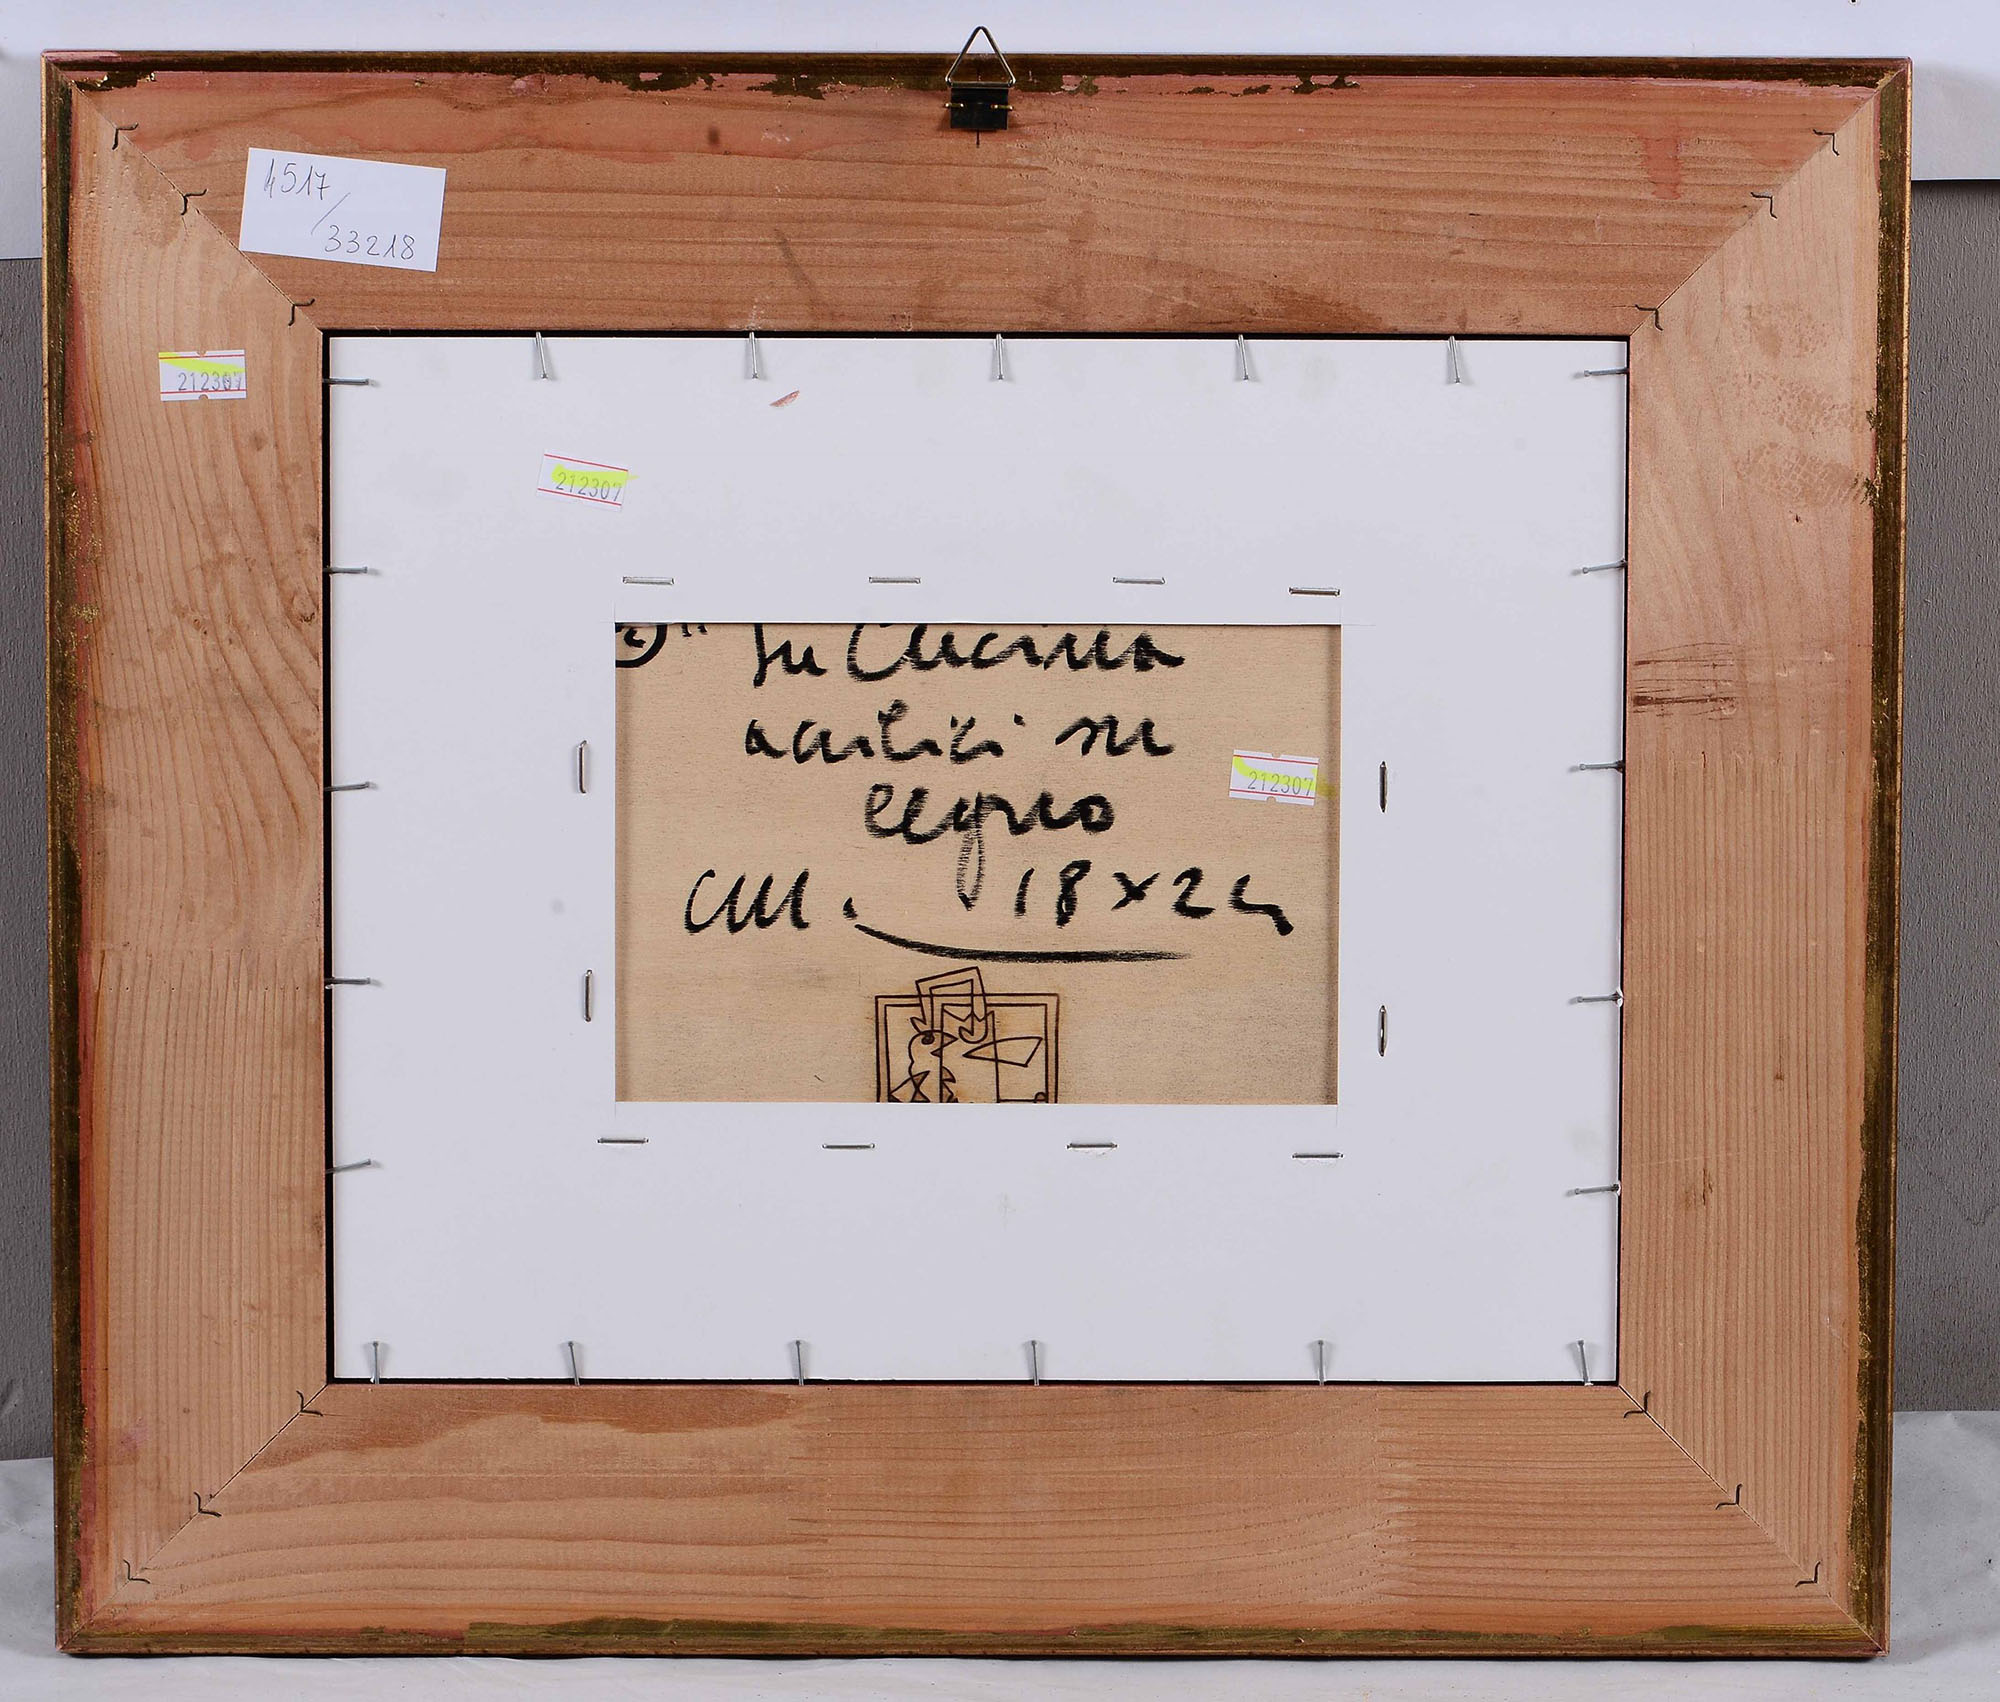 4517/
33218
212307
212307
" In Cucina
acrilici su
legno
212307
cm. 18x24